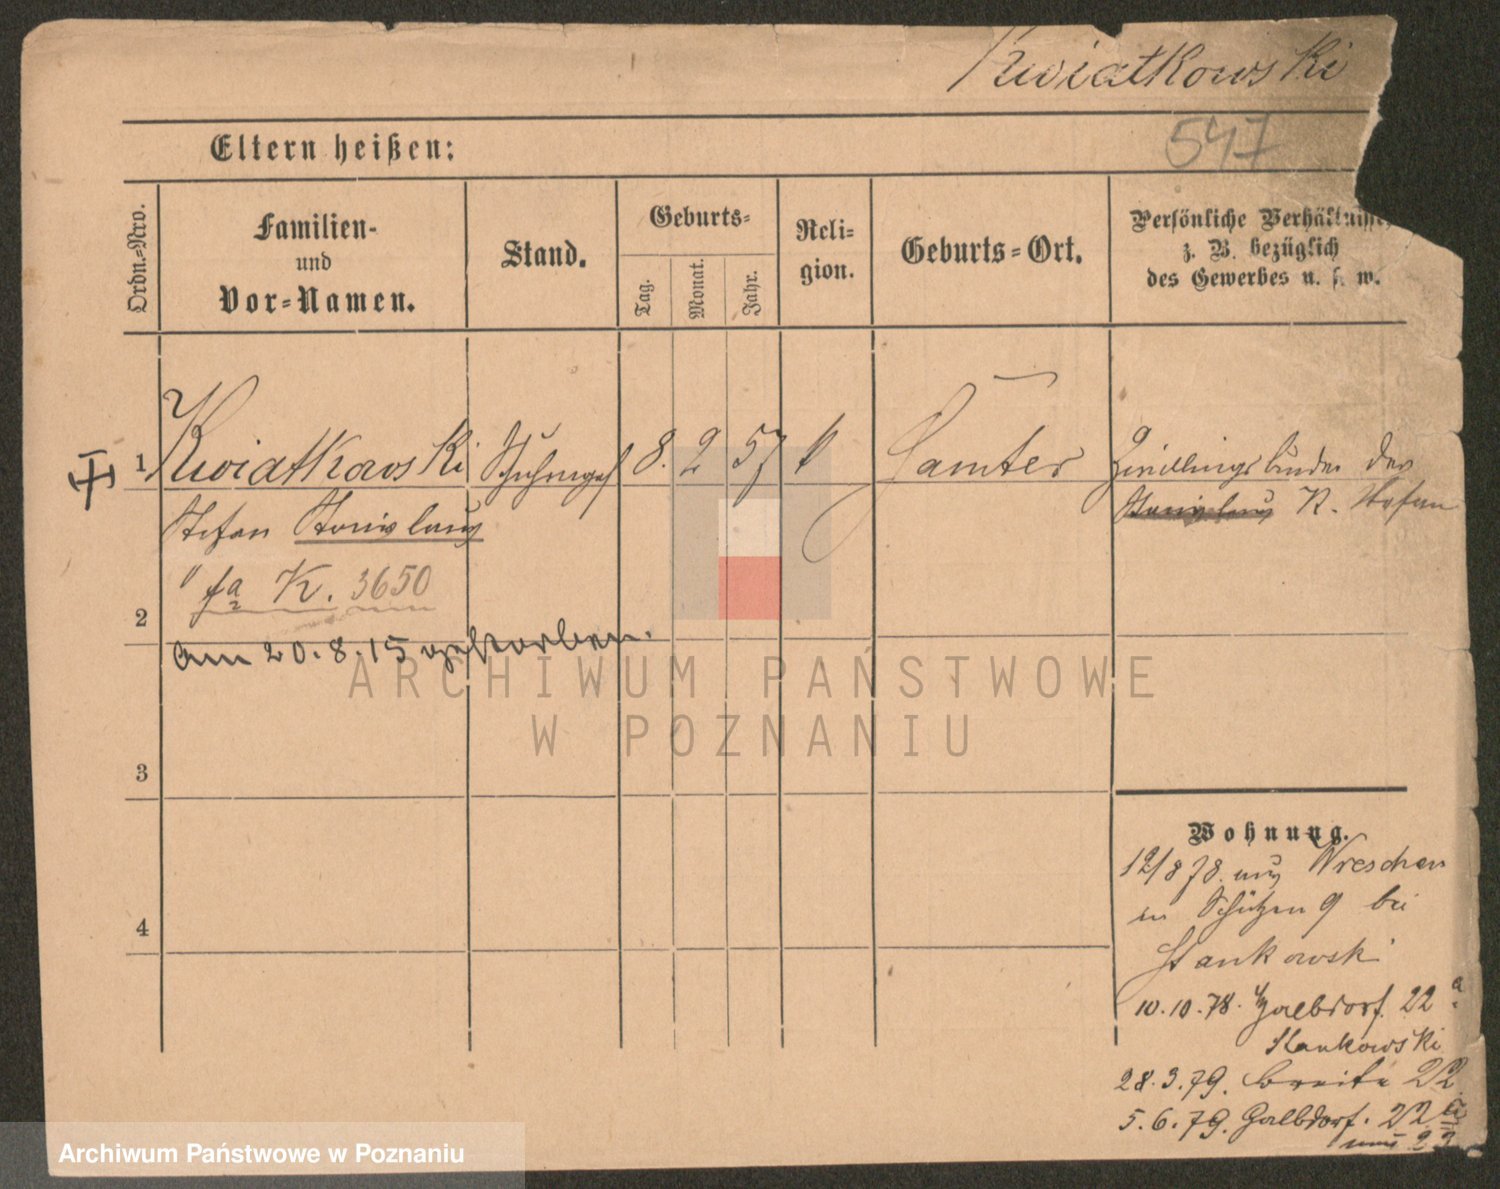 Kwiatkowski
547
Eltern heißen:
Ordn.-Nro.
Familien-
und
Vor-Namen.
Stand.
Geburts-
Tag.
Monat.
Jahr.
Reli-
gion.
Geburts-Ort.
Persönliche Verhältnisse,
z. B. bezüglich
des Gewerbes u. s. w.
1 Kwiatkowski 8. 2 57 Samter Zwillingsbruder des
Stefan Stanislaus
Stanislaus K. Stefan
K. 3650
2
am 20.8.15 gestorben.
3
4
Wohnung.
12/8 78. aus Wreschen
in Schützen 9 bei
Stankowski
10.10.78. Halbdorf. 22 a.
Stankowski
28.3.79. Breite 22
5.6.79. Halbdorf. 22 a
23
ARCHIWUM PAŃSTWOWE
W POZNANIU
Archiwum Państwowe w Poznaniu